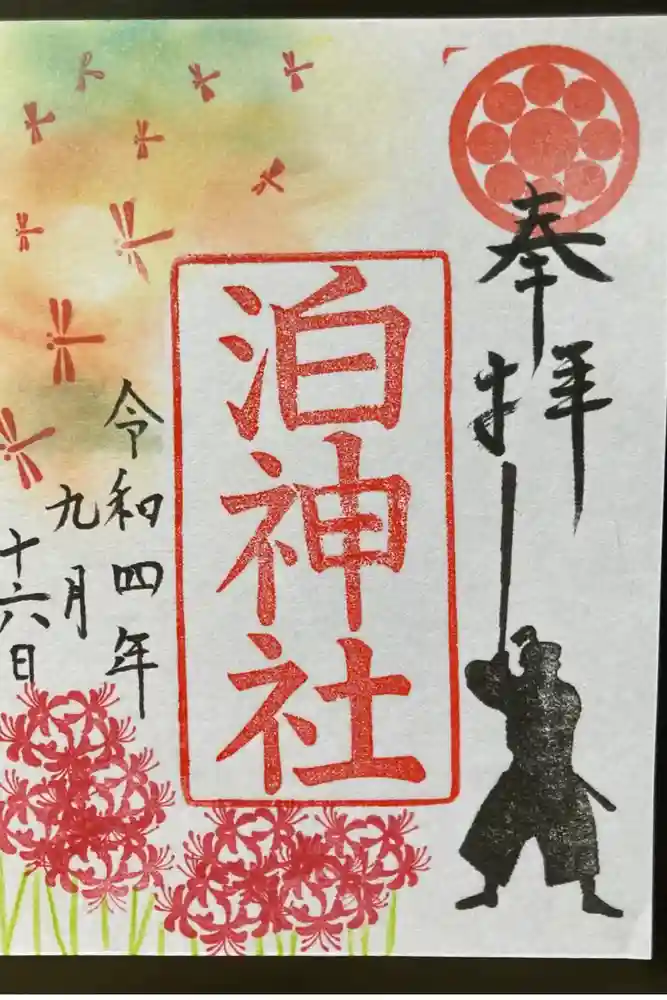 奉拝
泊神社
令和四年
九月
十六日